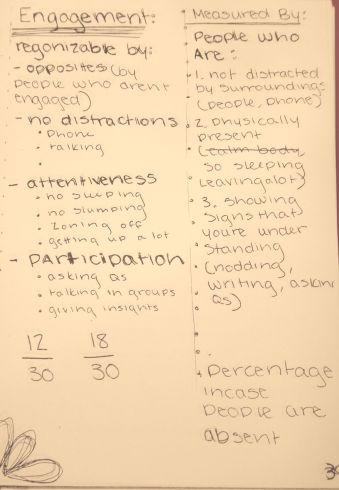 Engagement:
regonizable by:
- opposites (by
people who arent
engaged)
- no distractions
• phone
• talking
•
- attentiveness
• no sleeping
• no slumping
• zoning off
• getting up a lot
- participation
• asking Qs
• talking in groups
• giving insights
12
30
18
30
Measured By:
People who
Are:
1. not distracted
by surroundings
(people, phone)
2. physically
present
(calm body,
so sleeping
leaving alot)
3. showing
signs that
youre under
standing
(nodding,
writing, asking
Qs)
Percentage
incase
people are
absent